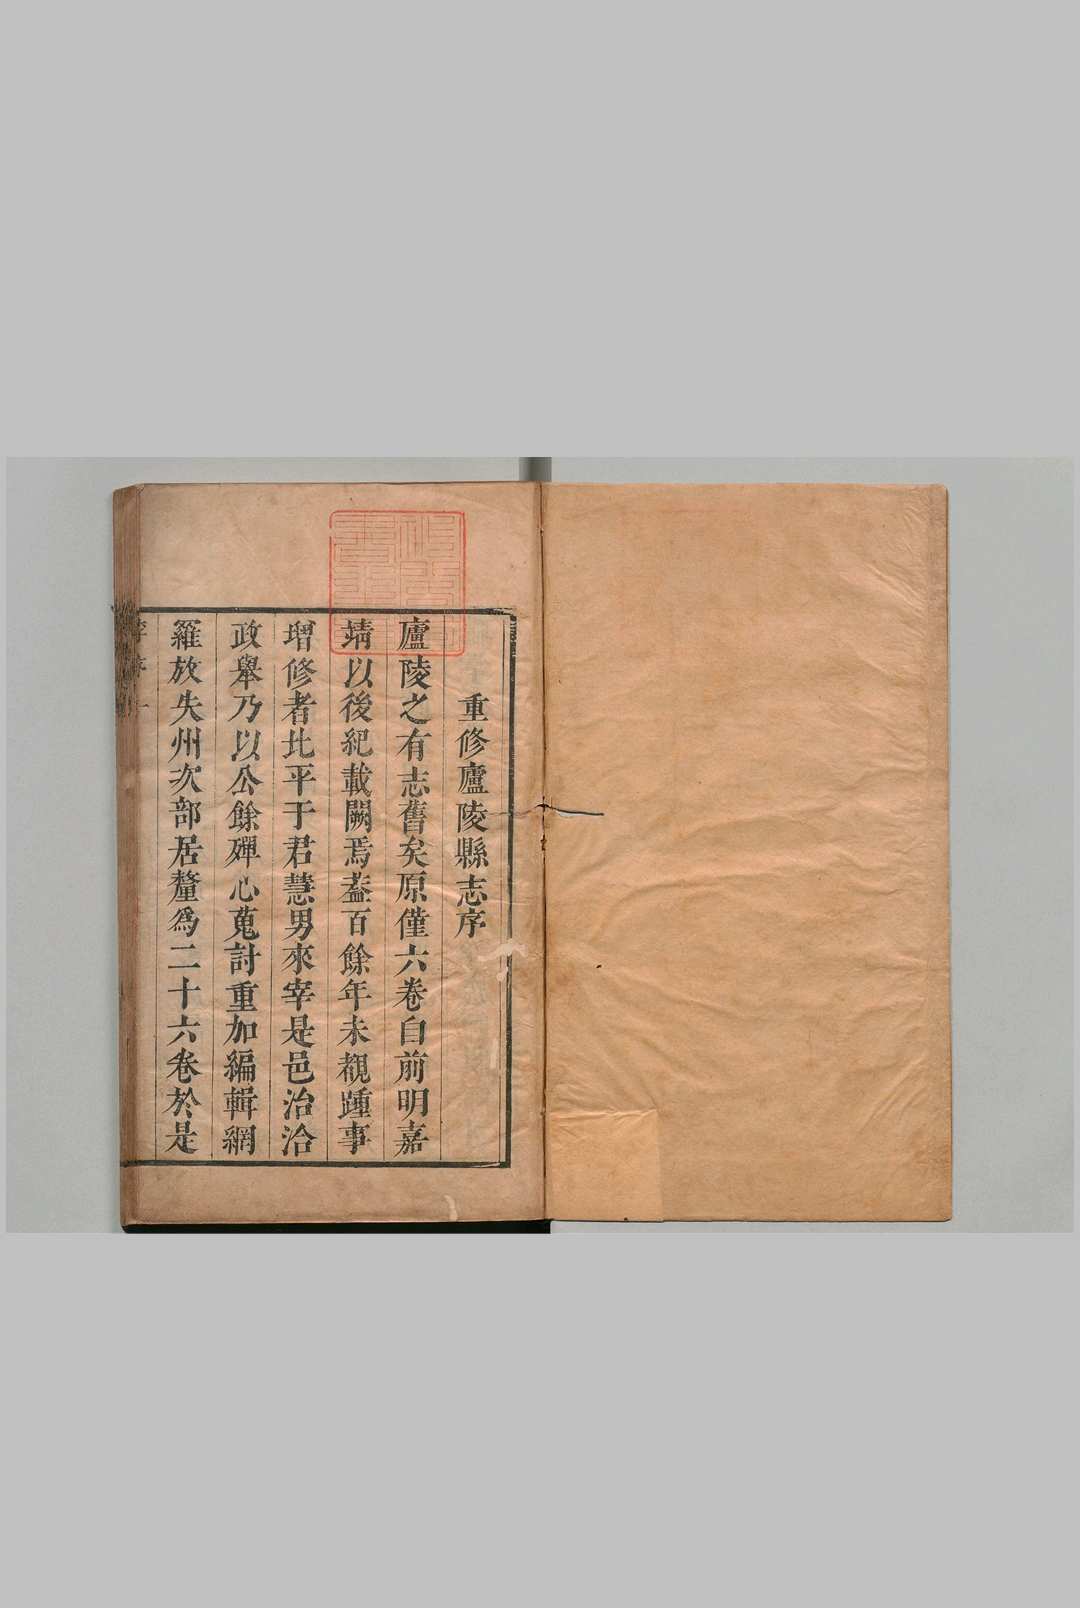 重修廬陵縣志序
廬陵之有志舊矣原僅六卷自前明嘉
靖以後紀載闕焉葢百餘年未覩踵事
增修者比平于君慧男來宰是邑治洽
政舉乃以公餘殫心蒐討重加編輯網
羅放失州次部居釐爲二十六卷於是